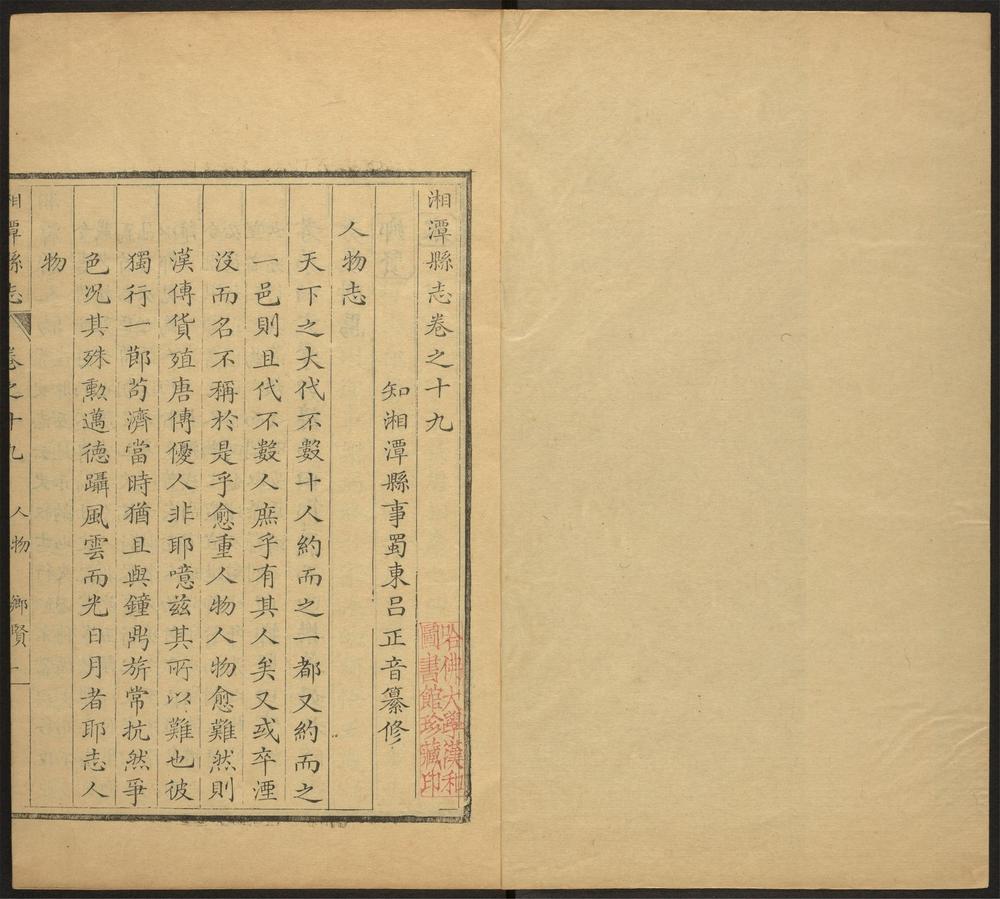 湘潭縣志卷之十九
知湘潭縣事蜀東呂正音纂修
人物志
天下之大代不數十人約而之一都又約而之
一邑則且代不數人庶乎有其人矣又或卒湮
沒而名不稱於是乎愈重人物人物愈難然則
漢傳貨殖唐傳優人非耶噫兹其所以難也彼
獨行一節苟濟當時猶且與鐘鼎旂常抗然爭
色况其殊勲邁德躡風雲而光日月者耶志人
物
湘潭縣志 卷之十九 人物 鄉賢 一
哈佛大學漢和
圖書館珍藏印